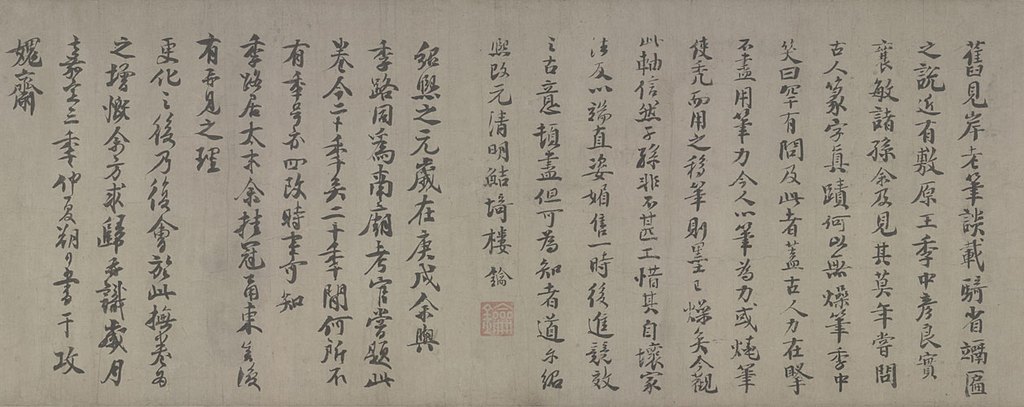 舊見岸老筆談載騎省竵匾
之說近有敷原王季中彥良實
襄敏諸孫余及見其莫年嘗問
古人篆字真蹟何以無燥筆季中
笑曰罕有問及此者蓋古人力在掔
不盡用筆力今人以筆為力或燒筆
使禿而用之移筆則墨已燥矣今觀
此軸信然子孫非不甚工惜其自壞家
法反以端直姿媚售一時後進競效
之古意頓盡但可為知者道尔紹
熙改元清明鮚埼樓鑰
紹熙之元歲在庚戌余與
季路同為南廟考官嘗題此
卷今二十季矣二十季間何所不
有季号亦四改時事可知
季路居太末余挂冠甬東豈復
有再見之理
更化之後乃復會於此撫卷為
之增慨余方求歸再識歲月
嘉定三季仲夏朔日書于攻
媿齋